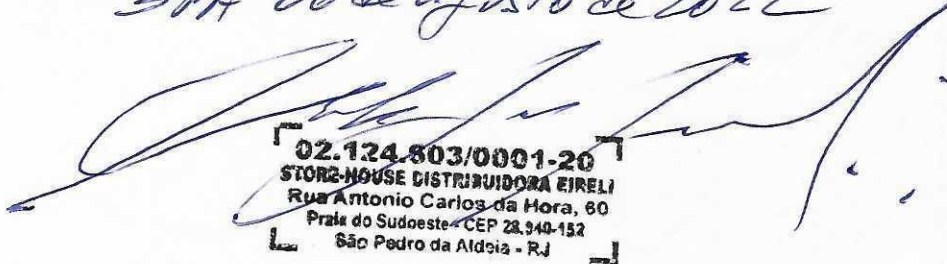 de agosto de 2022
02.124.803/0001-20
STORE-HOUSE DISTRIBUIDORA EIRELI
Rua Antonio Carlos da Hora, 60
Praia do Sudoeste - CEP 28.940-152
São Pedro da Aldeia - RJ